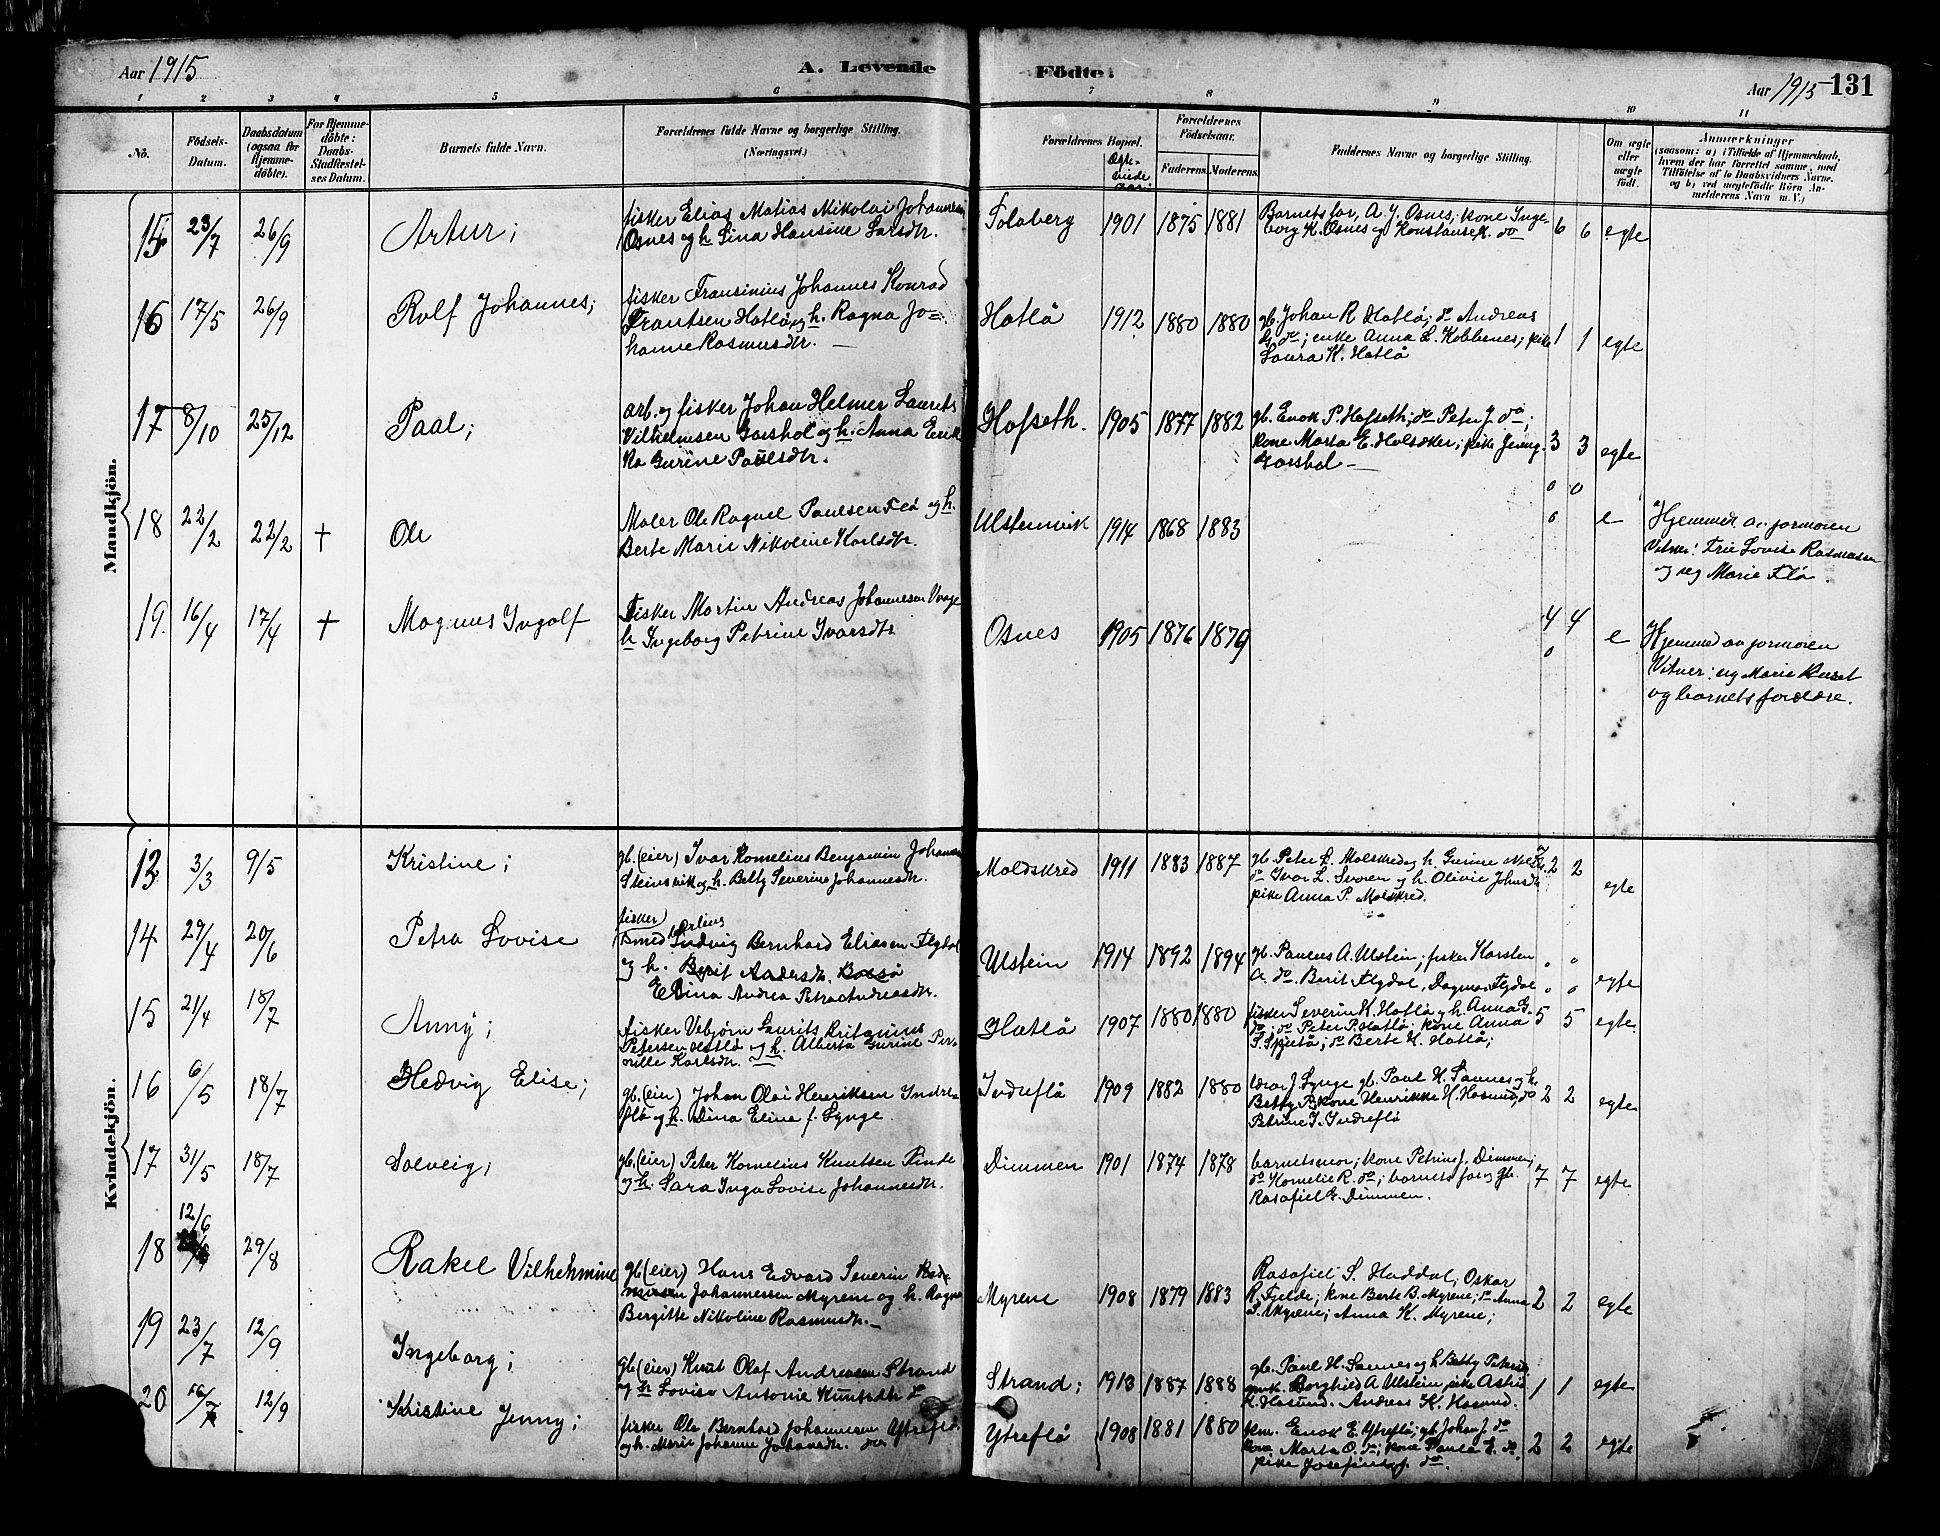 Aar 1915
A. Levende Födte.
Aar 1915 131
1 2 3 4 5 6 7 8 9 10 11
No.
Födsels-
Datum.
Daabsdatum
(ogsaa for
Hjemme-
döbte).
For Hjemme-
döbte:
Daabs-
Stadfæstel-
ses Datum.
Barnets fulde Navn.
Forældrenes fulde Navne og borgerlige Stilling.
(Næringsvei.)
Forældrenes Bopæl.
Forældrenes
Födselsaar.
Faderens. Moderens.
Faddernes Navne og borgerlige Stilling.
Om ægte
eller
uægte
födt.
Anmærkninger
(saasom: a) i Tilfælde af Hjemmedaab,
hvem der har forrettet samme, med
Tilföielse af to Daabsvidners Navne,
og b) ved uægtefödte Börn An-
melderens Navn m. V.)
Mandkjön.
15 23/7 26/9 Artur;
fisker Elias Matias Mikolai Johannesen
Osnes og h. Lina Hansine Larsdtr.
1901 1875 1881
Barnets far, A. J. Osnes, kone Inge-
borg K. Osnes og K. do
6 6 egte
16 17/5 26/9 Rolf Johannes;
fisker Fransinius Johannes Konrad
Frantsen Hatlö og h. Ragna Jo-
hanne Rasmusdtr. —
Hatlö 1912 1880 1880
gb. Johan R Hatlö; do Andreas
do; enke Anna L. Kobbenes; pike
Laura K. Hatlö
1 1 egte
17 8/10 25/12 Paal;
arb. og fisker Johan Helmer Laurits
Vilhelmsen Garshol og h. Anna Erik-
ka Gurine Paulsdtr.
Hofseth. 1905 1877 1882
gb. Enok P. Hofseth; do Peter J. do;
kone Marta E. Holsæker; pike Jenny
Garshol —
3 3 egte
0 0
18 22/2 22/2 + Ole
Maler Ole Ragnel Paulsen Flö og h.
Berte Marie Nikoline Karlsdtr.
Ulstenvik 1914 1868 1883
0 e
Hjemmed av jormoren
Vitner: Frie Lovise Rasmussen
og Marie Flö.
19. 16/4 17/4 + Magnus Ingolf
Fisker Martin Andreas Johannesen Vaage
h Ingeborg Petrine Ivarsdtr
Osnes 1905 1876 1879
4 4
0 e
Hjemmed av jormoren
Vitner: Marie
og barnets forældre.
Kvindekjön.
13 3/3 9/5 Kristine;
gb. (eier) Ivar Kornelius Benjamin Johannesen
Steinsvik og h. Betty Severine Johannesdtr.
Moldskred 1911 1883 1887
gb. Peter L. Molskred og h. Gurine
do Ivar L. Svoren og h. Olivie Johnsdtr
pike Anna P. Molskred.
2 2 egte
14 29/4 20/6 Petra Lovise
fisker
Ludvig Bernhard Eliasen Flydal
og h. Berit Andersdtr.
Elina Andrea Petra Andreasdtr.
Ulstein 1914 1892 1894
gb. Paulus A. Ulstein; fisker Karsten
A. do. Berit Flydal, Dagmar Flydal
0 0 egte
15 21/4 18/7 Anny;
fisker Vebjörn Laurits Kritanius
Petersen Hatlö og h. Alberta Gurine Per-
nille Karlsdtr. —
Hatlö 1907 1880 1880
fisker Severin K. Hatlö og h. Anna G.
do; do Peter P. Hatlö; kone Anna
do Berte H. Hatlö;
5 5 egte.
16 6/5 18/7 Hedvig Elise;
gb. (eier) Johan Olai Henriksen Indre-
flö og h. Dina Eline f. Lynge.
Indreflö 1909 1882 1880
Ivar J. Lynge gb. Paul H. Sannes og h.
Betty P. kone Henrikke H. Hasund, do
Petrine I. Indreflö
2 2 egte.
17 31/5 18/7 Solveig;
gb. (eier) Peter Kornelius Knutsen Rinde
og h. Sara Inga Lovise Johannesdtr.
Dimmen 1901 1874 1878
barnets mor; kone Petrine J. Dimmen;
do Kornelie R. do; barnets far og gb.
Rasafiel G. Dimmen.
7 7 egte
18 12/6 29/8 Rakel Vilhelmine
gb. (eier) Hans Edvard Severin
Johannessen Myrene og h. Ragna
Bergitte Nikoline Rasmusdtr. —
Myrene 1908 1879 1883
Rasafiel S. Haddal; Oskar
R. Fjelde; kone Berte B. Myrene; do Anna
Myrene; Anna K. Myrene;
2 2 egte
19 23/7 12/9 Ingeborg;
gb. (eier) Knut Olaf Andreasen Strand
og h Lovise Antonie Knutsdtr do
Strand; 1913 1887 1888
gb. Paul H. Sannes og h Betty
Borghild A. Ulstein, pike Astrid
K. Hasund. Andreas K. Hasund.
1 1 egte
20 16/7 12/9 Kristine Jenny;
fisker Ole Bernhard Johannesen Ytreflö
og h. Marie Johanne Johansdtr.
Ytreflö 1908 1881 1880
km. Enok E. Ytreflö; gb. Johan J. do
kone Marta O. do; kone Paula E. do,
pike Josefine J. do.
2 2 egte